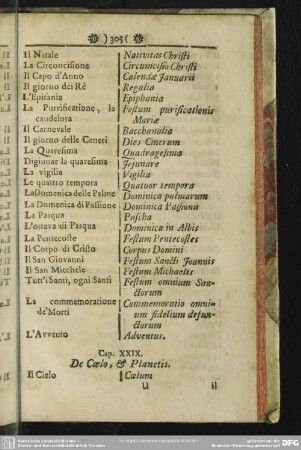 ) 305 (
Il Natale Nativitas Christi
La Circoncisione Circumcisio Christi
Il Capo d'Anno Calendæ Januarii
Il giorno dei Ré Regalia
L'Epifania Epiphania
La Purificatione, la Festum purificationis
candelora Mariæ
Il Carnevale Bacchanalia
Il giorno delle Ceneri Dies Cinerum
La Quaresima Quadragesima
Digiunar la quaresima Jejunare
La vigilia Vigilia
Le quattro tempora Quatuor tempora
La Domenica delle Palme Dominica palmarum
La Domenica di Passione Dominica Passionis
La Pasqua Pascha
L'ottava di Pasqua Dominica in Albis
La Pentecoste Festum Pentecostes
Il Corpo di Cristo Corpus Domini
Il San Giovanni Festum Sancti Joannis
Il San Micchele Festum Michaelis
Tutt'i Santi, ogni Santi Festum omnium San-
ctorum
La commemoratione Commemoratio omni-
de'Morti um fidelium defun-
ctorum
L'Avvento Adventus.
Cap. XXIX.
De Cœlo, & Planetis.
Il Cielo Cœlum
U il